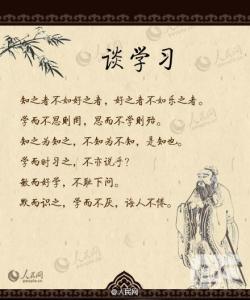 谈学习
知之者不如好之者，好之者不如乐之者。
学而不思则罔，思而不学则殆。
知之为知之，不知为不知，是知也。
学而时习之，不亦说乎？
敏而好学，不耻下问。
默而识之，学而不厌，诲人不倦。
人民网
people.cn
@人民网